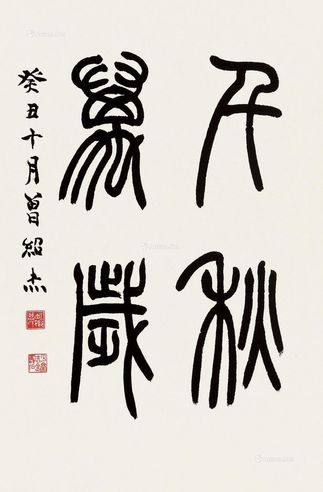 千秋
萬歲
癸丑十月曾紹杰